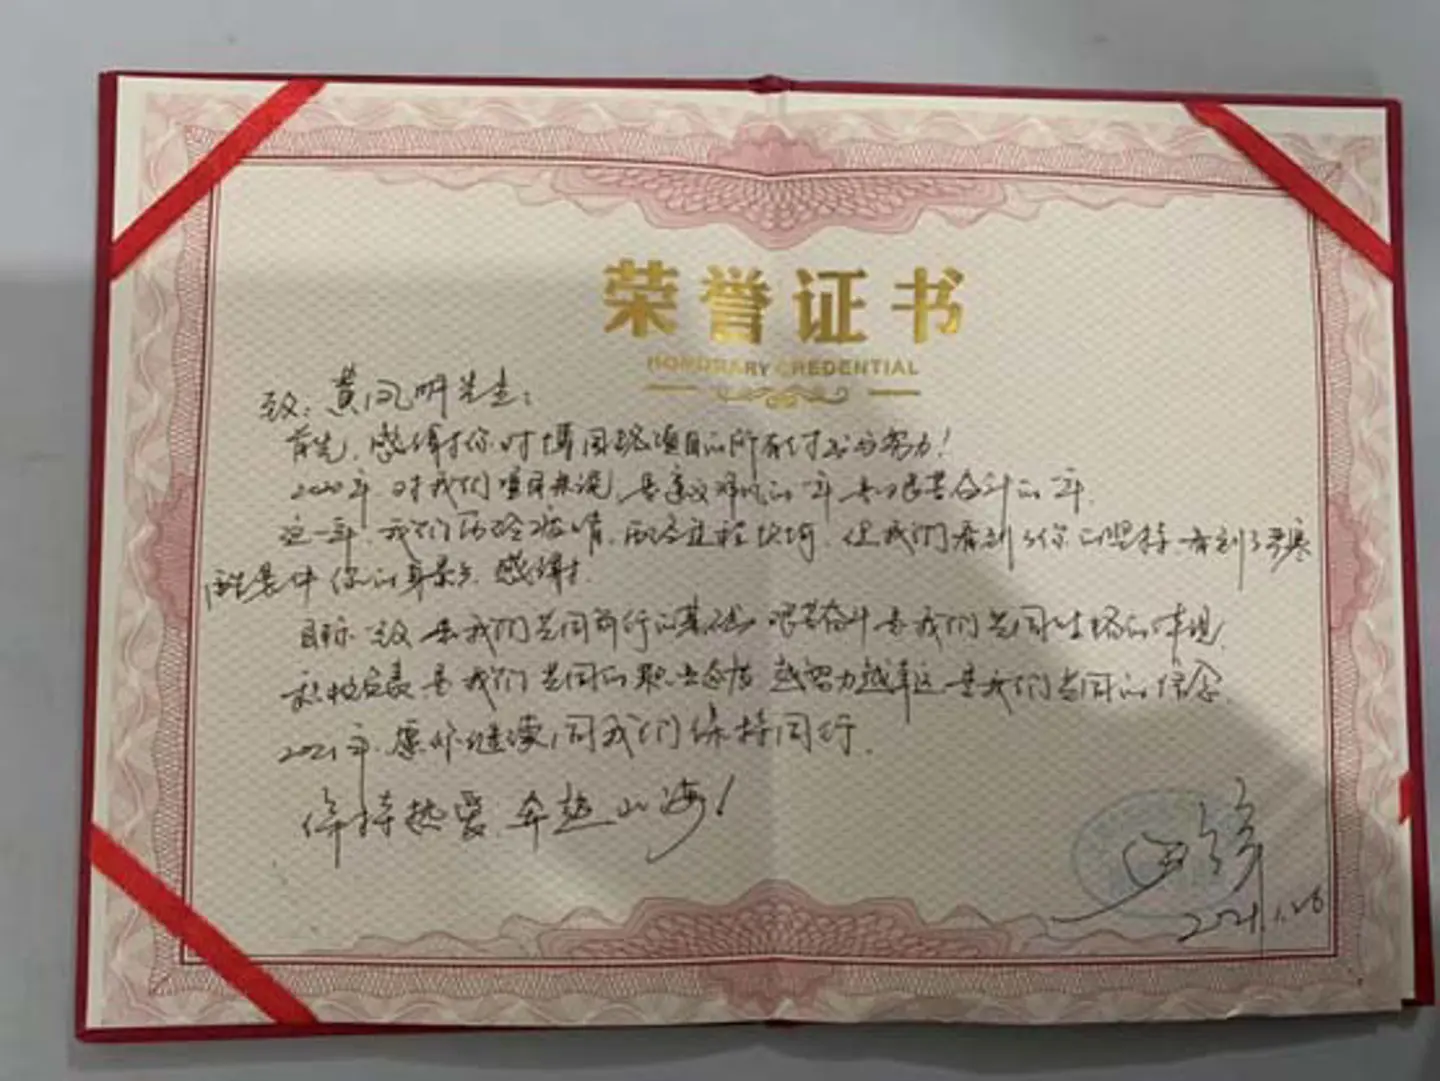 荣誉证书
HONORARY CREDENTIAL
致：黄凤明先生：
首先，感谢你对博园瑞项目的所有付出与努力！
2020年，对我们项目来说，是意义非凡的一年，是艰苦奋斗的一年。
这一年，我们历经疫情，历经征程坎坷，但我们看到了你的坚持，看到了严寒
酷暑中你的身影，感谢！
目标一致是我们共同前行的基础，艰苦奋斗是我们共同立场的体现，
积极应表是我们共同的职业态度，越努力越幸运是我们共同的信念。
2021年，愿你继续同我们保持同行。
保持热爱，奔赴山海！
2021.1.26